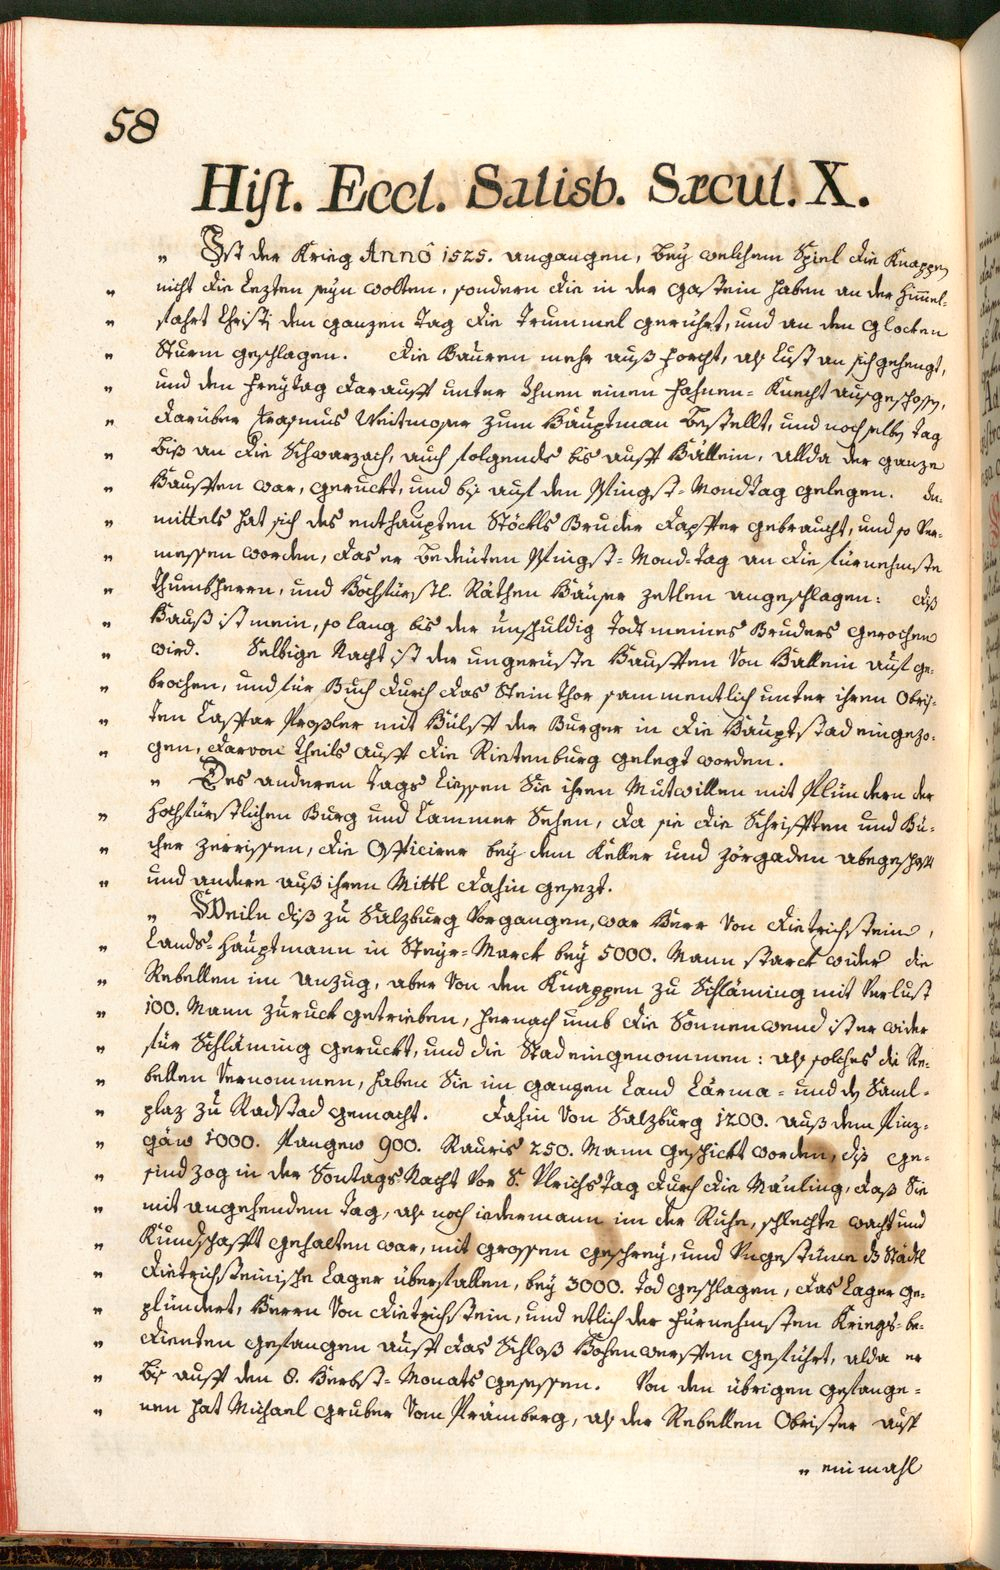 58
Hist. Eccl. Salisb. Sæcul. X.
„ Ist der Krieg Annô 1525. angangen, bey welchem Spiel die Knappen
„ nicht die Lezten seyn wolten, sondern die in der Gastein haben an der Him̅el-
„ fahrt Christi den ganzen Tag die Trummel gerührt, und an den Glocken
„ Sturm geschlagen. Die Bauren mehr auß Forcht, als Lust an sich gehengt,
„ und den Freytag darauff unter Ihnen einen Fahnen-Knecht ausgeschossen,
„ darüber Erasmus Weitmoser zum Hauptman bestellt, und noch selben Tag
„ biß an die Schwarzach, auch folgends bis auff Hällein, allda der ganze
„ Hauffen war, geruckt, und bis auf den Pfingst-Mondtag gelegen. In-
„ mittels hat sich des enthaupten Stöckls Bruder dapffer gebraucht, und so ver-
„ messen worden, das er bedeuten Pfingst-Mond-Tag an die fürnehmste
„ Thumbherrn, und Hochfürstl. Räthen Häuser zetlen angeschlagen: diß
„ Hauß ist mein, so lang bis der unschuldig Todt meines Bruders gerochen
„ wird. Selbige Nacht ist der ungerüste Hauffen von Hallein auf ge-
„ brochen, und für Buch durch das Stein Thor sammentlich unter ihren Obris-
„ ten Caspar Proßler mit Hülff der Burger in die Hauptstad eingezo-
„ gen, darvon Theils auff die Rietenburg gelegt worden.
„ Des anderen Tags liessen Sie ihren Mutwillen mit Plündern der
„ Hochfürstlichen Burg und Cammer Sehen, da sie die Schrifften und Bü-
„ cher zerrissen, die Officirer bey dem Keller und zörgaden abgeschafft
„ und andere auß ihren Mittl dahin gesezt.
„ Weiln diß zu Salzburg vorgangen, war Herr von Dietrichstein,
„ Lands-Hauptmann in Steyr-Marck bey 5000. Mann starck wider die
„ Rebellen im Anzug, aber von den Knappen zu Schläming mit Verlust
„ 100. Mann zuruck getrieben, hernach umb die Sonnenwend ist er wider
„ für Schläming geruckt, und die Stad eingenommen: als solches die Re-
„ bellen vernommen, haben Sie im ganzen Land Lärma- und den Saml-
„ plaz zu Radstad gemacht. Dahin von Salzburg 1200. auß dem Pinz-
„ gäw 1000. Pangew 900. Rauris 250. Mann geschickt worden, diß Ge-
„ sind zog in der Sontags Nacht vor S. Ulrichs Tag durch die Mänling, daß Sie
„ mit angehendem Tag, als noch iedermann im der Ruhe, schlechte wacht und
„ Kundschafft gehalten war, mit grossen Geschrey, und Ungestüme ds Städtl
„ Dietrichsteinische Lager überfallen, bey 3000. Tod geschlagen, das Lager ge-
„ plündert, Herrn von Dietrichstein, und etlich der Fürnehmsten Kriegs-be-
„ dienten gefangen auff das Schloß Hohenwerffen geführt, alda er
„ bis auff den 8. Herbst-Monats gesessen. Von den übrigen gefange-
„ nen hat Michael Gruber vom Prämberg, als der Rebellen Obrister auff
„ einmahl